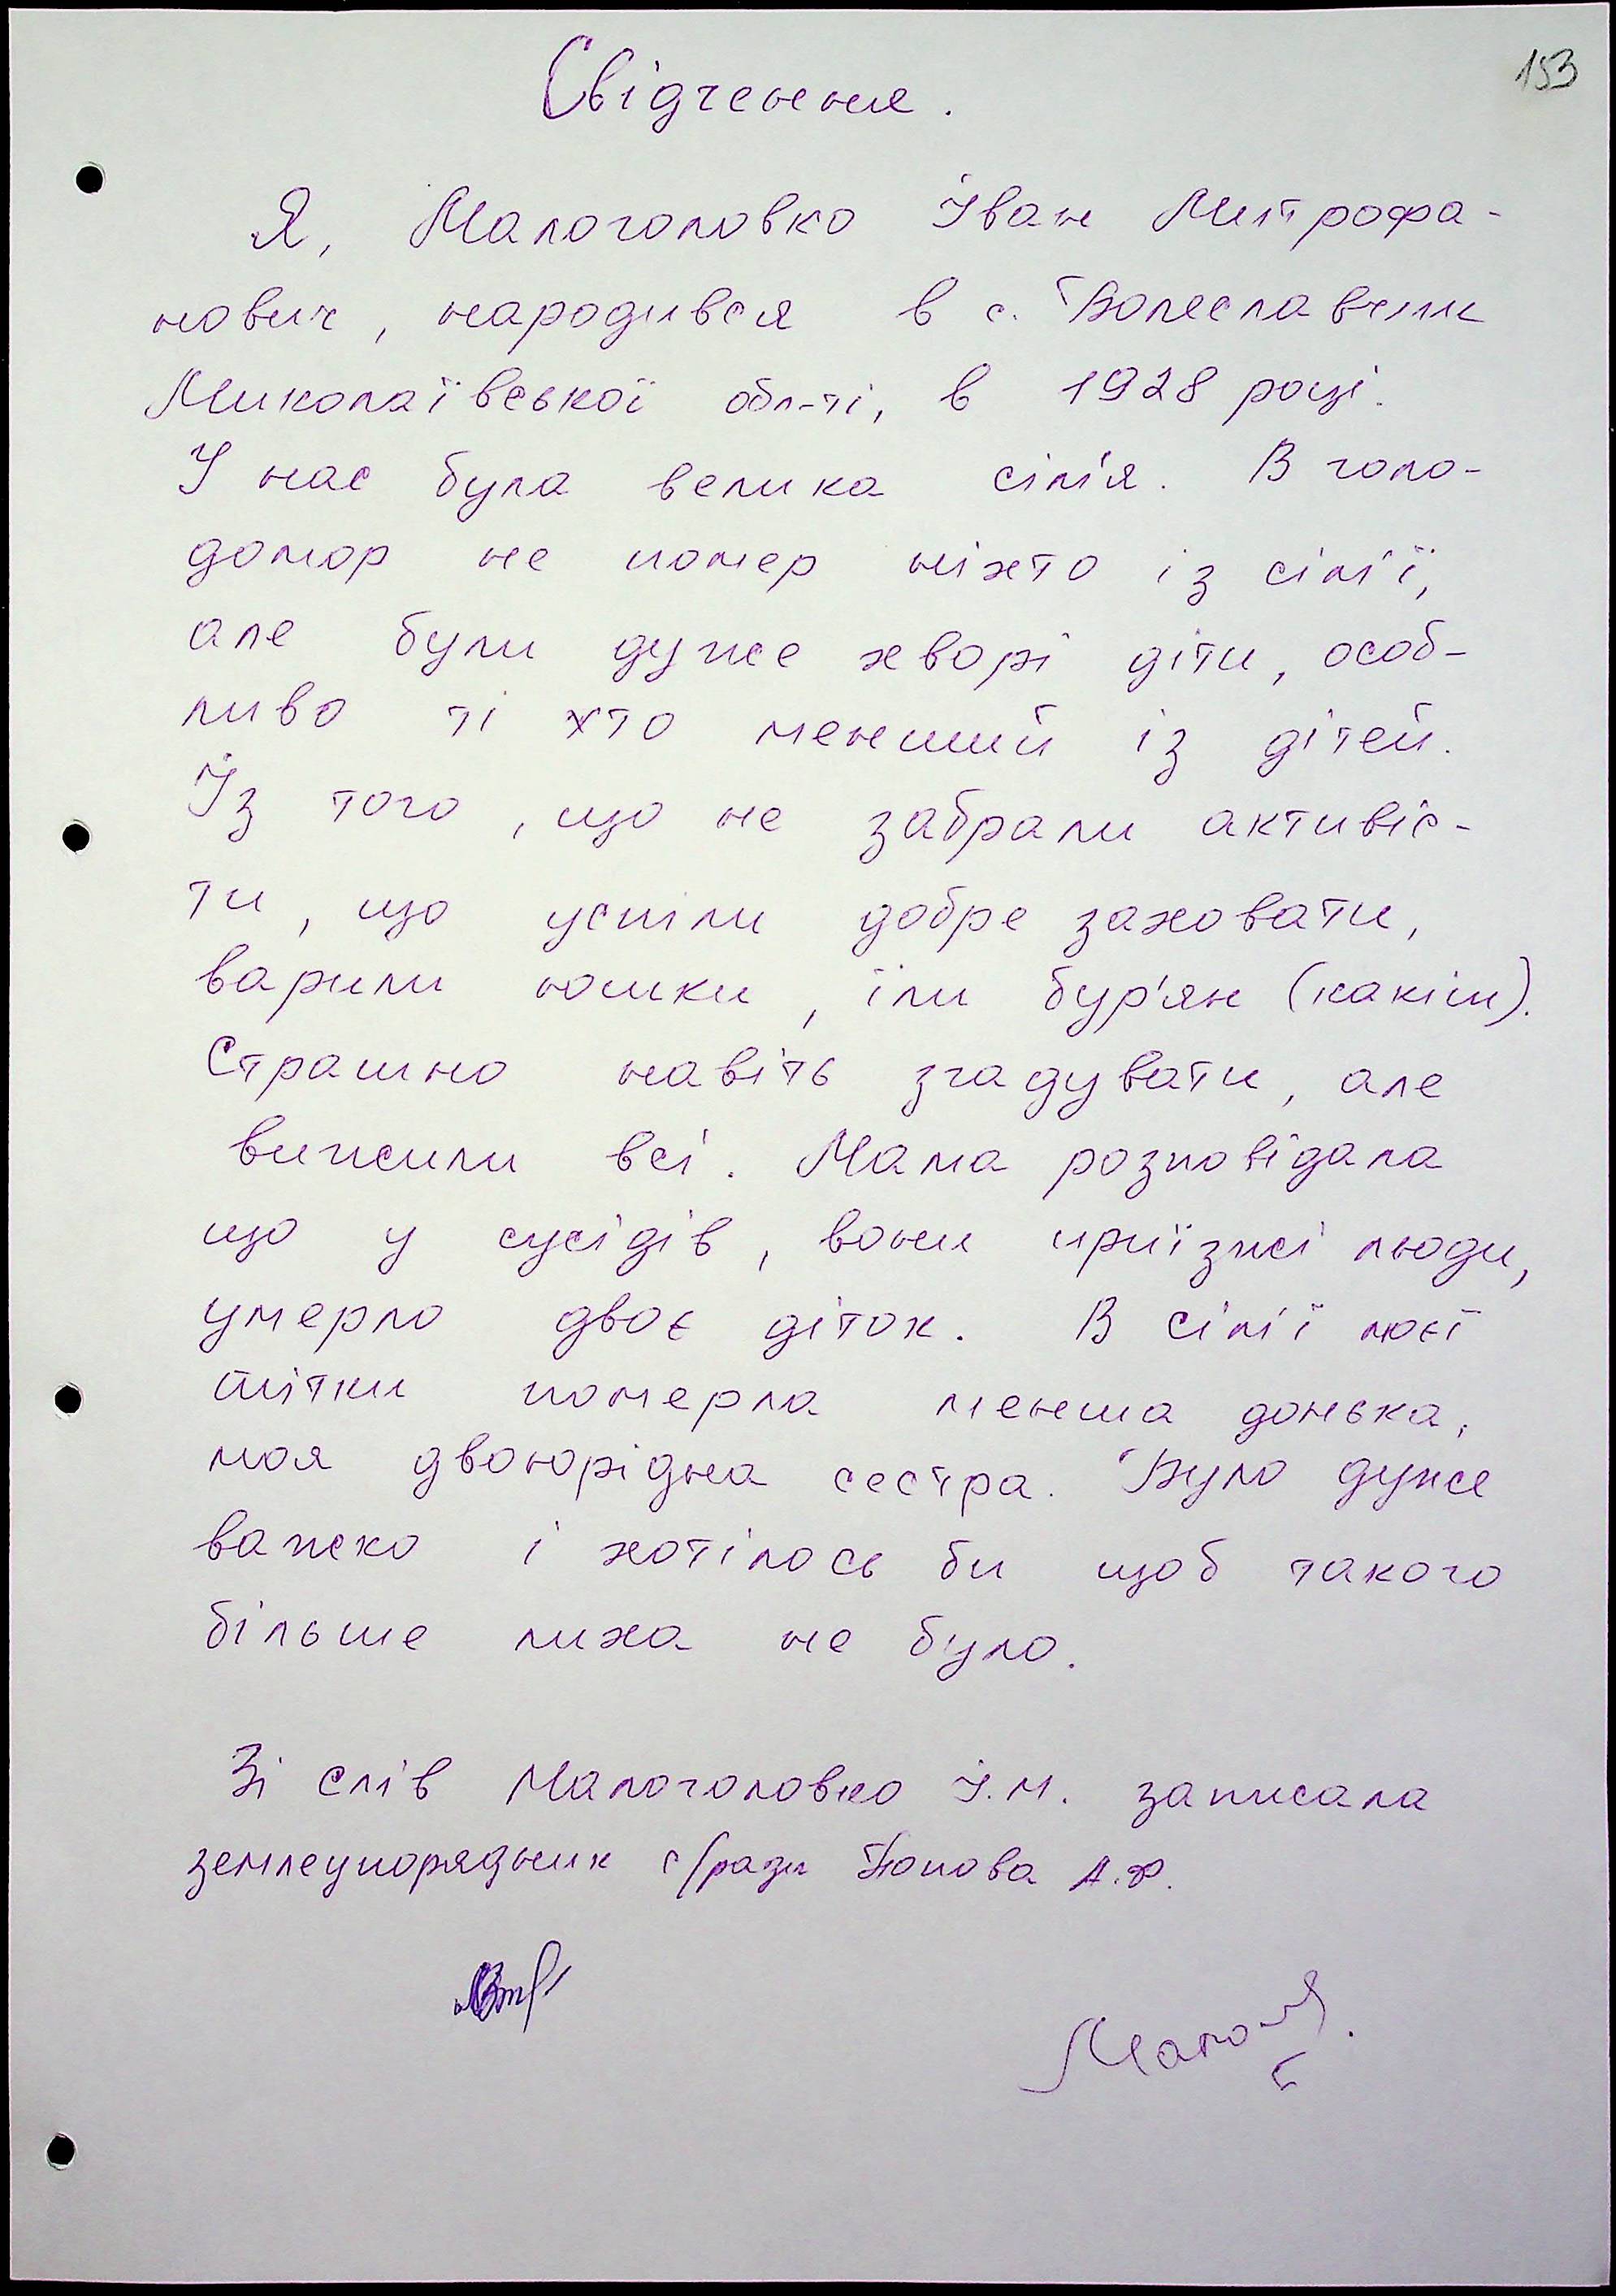 153
Свідчення.
Я, Малоголовко Іван Митрофа-
нович, народився в с. Болеславчик
Миколаївської обл-ті, в 1928 році.
У нас була велика сім'я. В голо-
домор не помер ніхто із сім'ї,
але були дуже хворі діти, особ-
ливо ті хто менший із дітей.
Із того, що не забрали активіс-
ти, що успіли добре заховати,
варили юшки, їли бур'ян (какіш).
Страшно навіть згадувати, але
вижили всі. Мама розповідала
що у сусідів, вони приїзжі люди,
умерло двоє діток. В сім'ї моєї
тітки померла менша донька,
моя двоюрідна сестра. Було дуже
важко і хотілось би щоб такого
більше лиха не було.
Зі слів Малоголовко І.М. записала
землеупорядник с/ради Попова А.Ф.